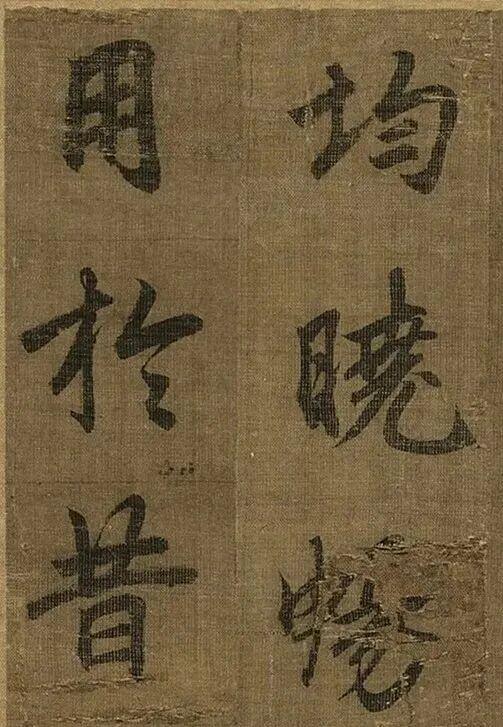 均曉暢
用於昔